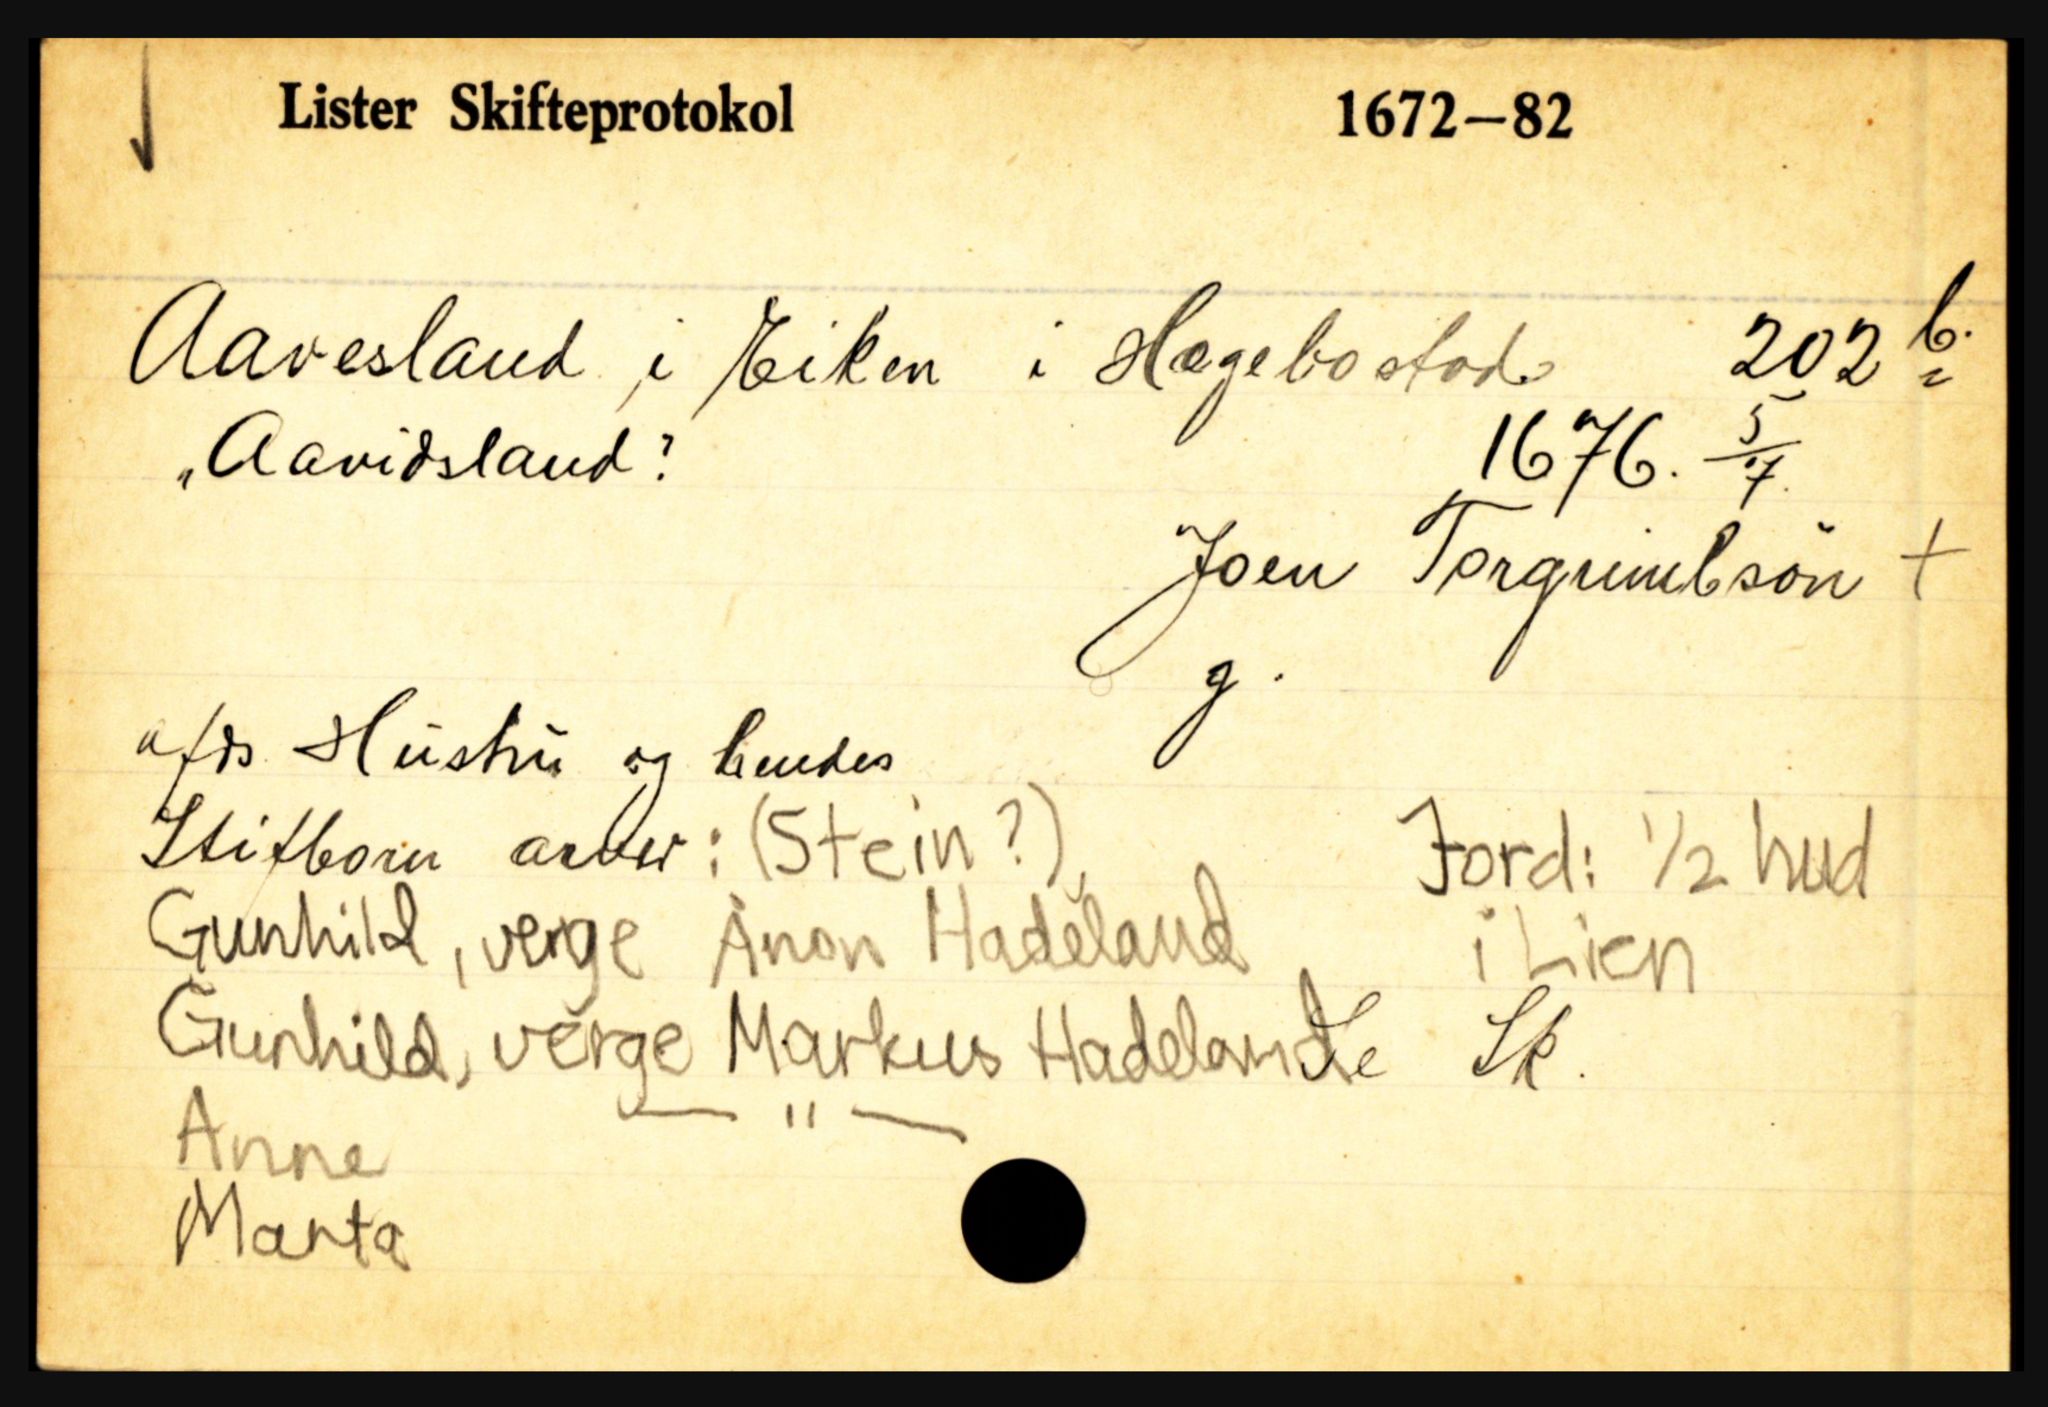 Lister Skifteprotokol 1672–82
Aavesland i Eiken i Hægebostad 202 b.
"Aavidsland? 1676. 5/7.
Joen Torgrimbsön +
g.
afds Hustru og hendes
Stifbørn arver: (Stein?) Jord: 1/2 hud
Gunhild, verge Ånon Hadeland i Lien
Gunhild, verge Markus Hadeland Se Sk.
Anne — " —
Marta